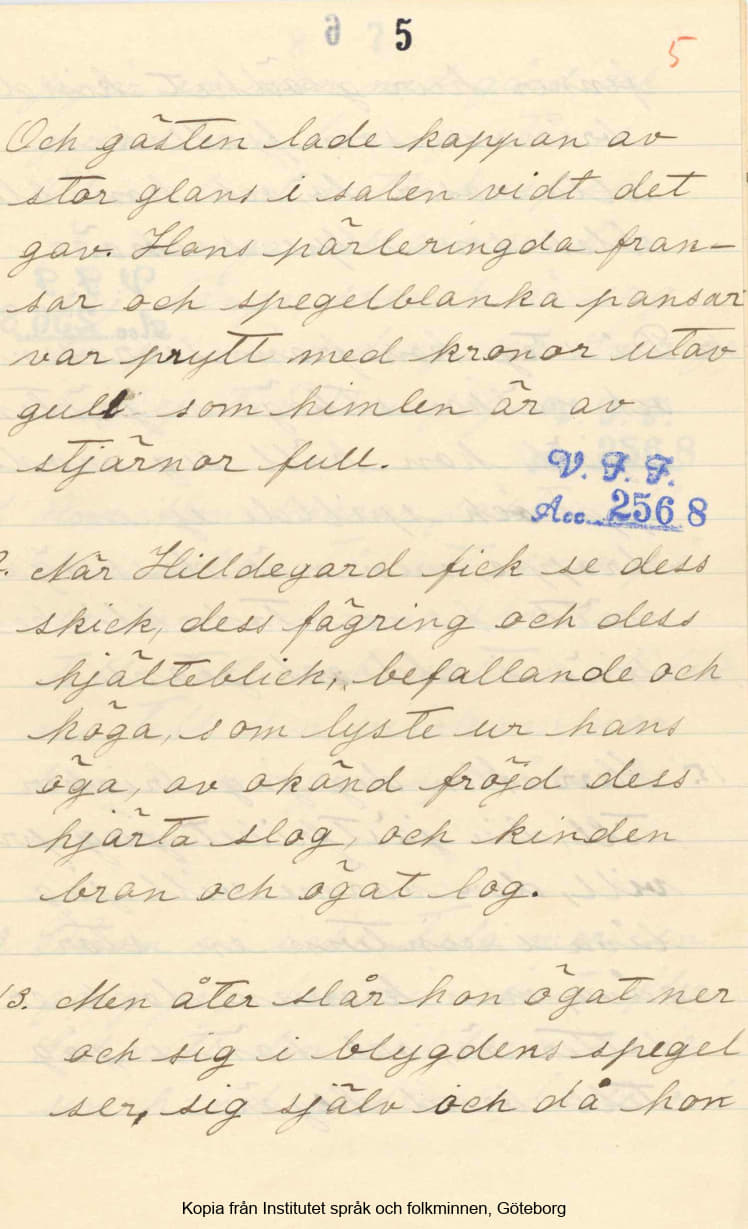 6 5
5
Och gästen lade kappan av
stor glans i salen vidt det
gav. Hans pärleringda fran-
sar och spegelblanka pansar
var prytt med kronor utav
gull som himlen är av
stjärnor full.
V. F. F.
Acc. 2568
2. När Hilldegard fick se dess
skick, dess fägring och dess
hjälteblick, befallande och
höga, som lyste ur hans
öga, av okänd fröjd dess
hjärta slog, och kinden
bran och ögat log.
13. Men åter slår hon ögat ner
och sig i blygdens spegel
ser, sig själv och då hon
Kopia från Institutet språk och folkminnen, Göteborg